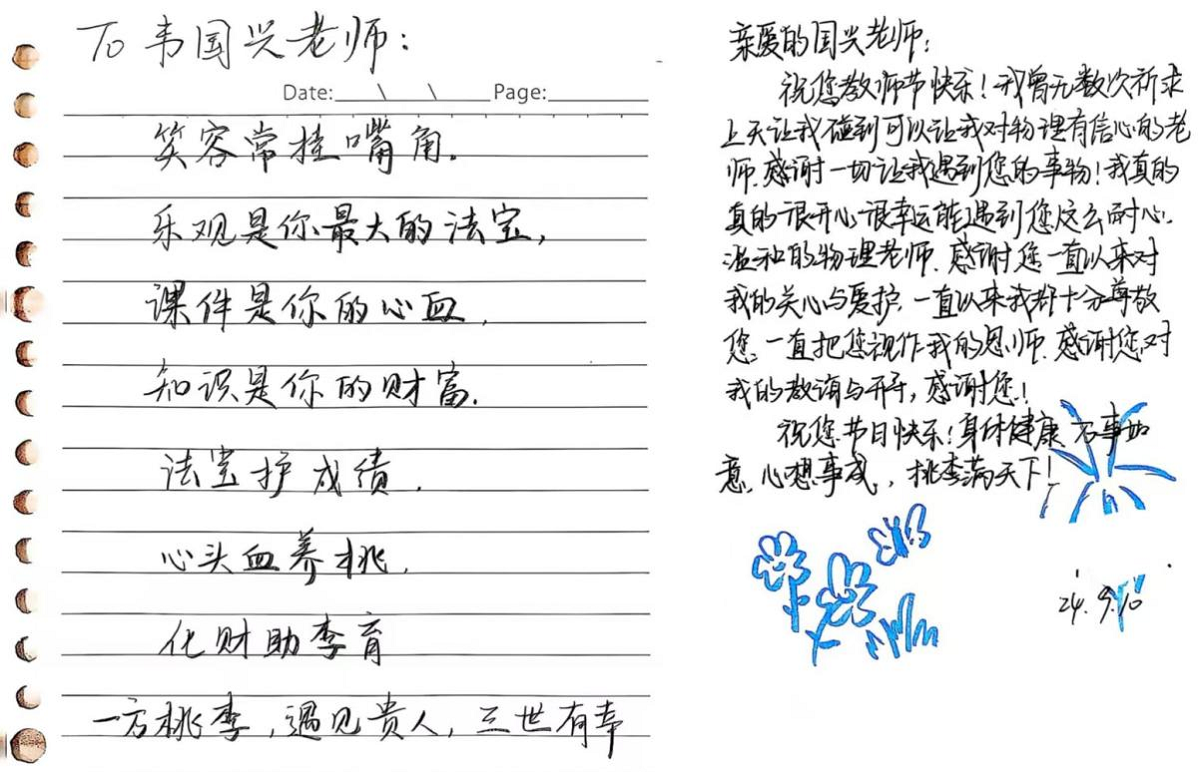 To 韦国兴老师：
Date: \ \ Page:
笑容常挂嘴角.
乐观是你最大的法宝,
课件是你的心血,
知识是你的财富.
法宝护成绩.
心头血养桃,
化财助李育
一方桃李,遇见贵人,三世有幸
亲爱的国兴老师:
祝您教师节快乐!我曾无数次祈求
上天让我碰到可以让我对物理有信心的老
师.感谢一切让我遇到您的事物!我真的
真的很开心很幸运能遇到您这么耐心.
温和的物理老师.感谢您一直以来对
我的关心与爱护.一直以来我都十分尊敬
您.一直把您视作我的恩师.感谢您对
我的教诲与开导,感谢您!
祝您节日快乐!身体健康 万事如
意.心想事成,桃李满天下!
24.9.10